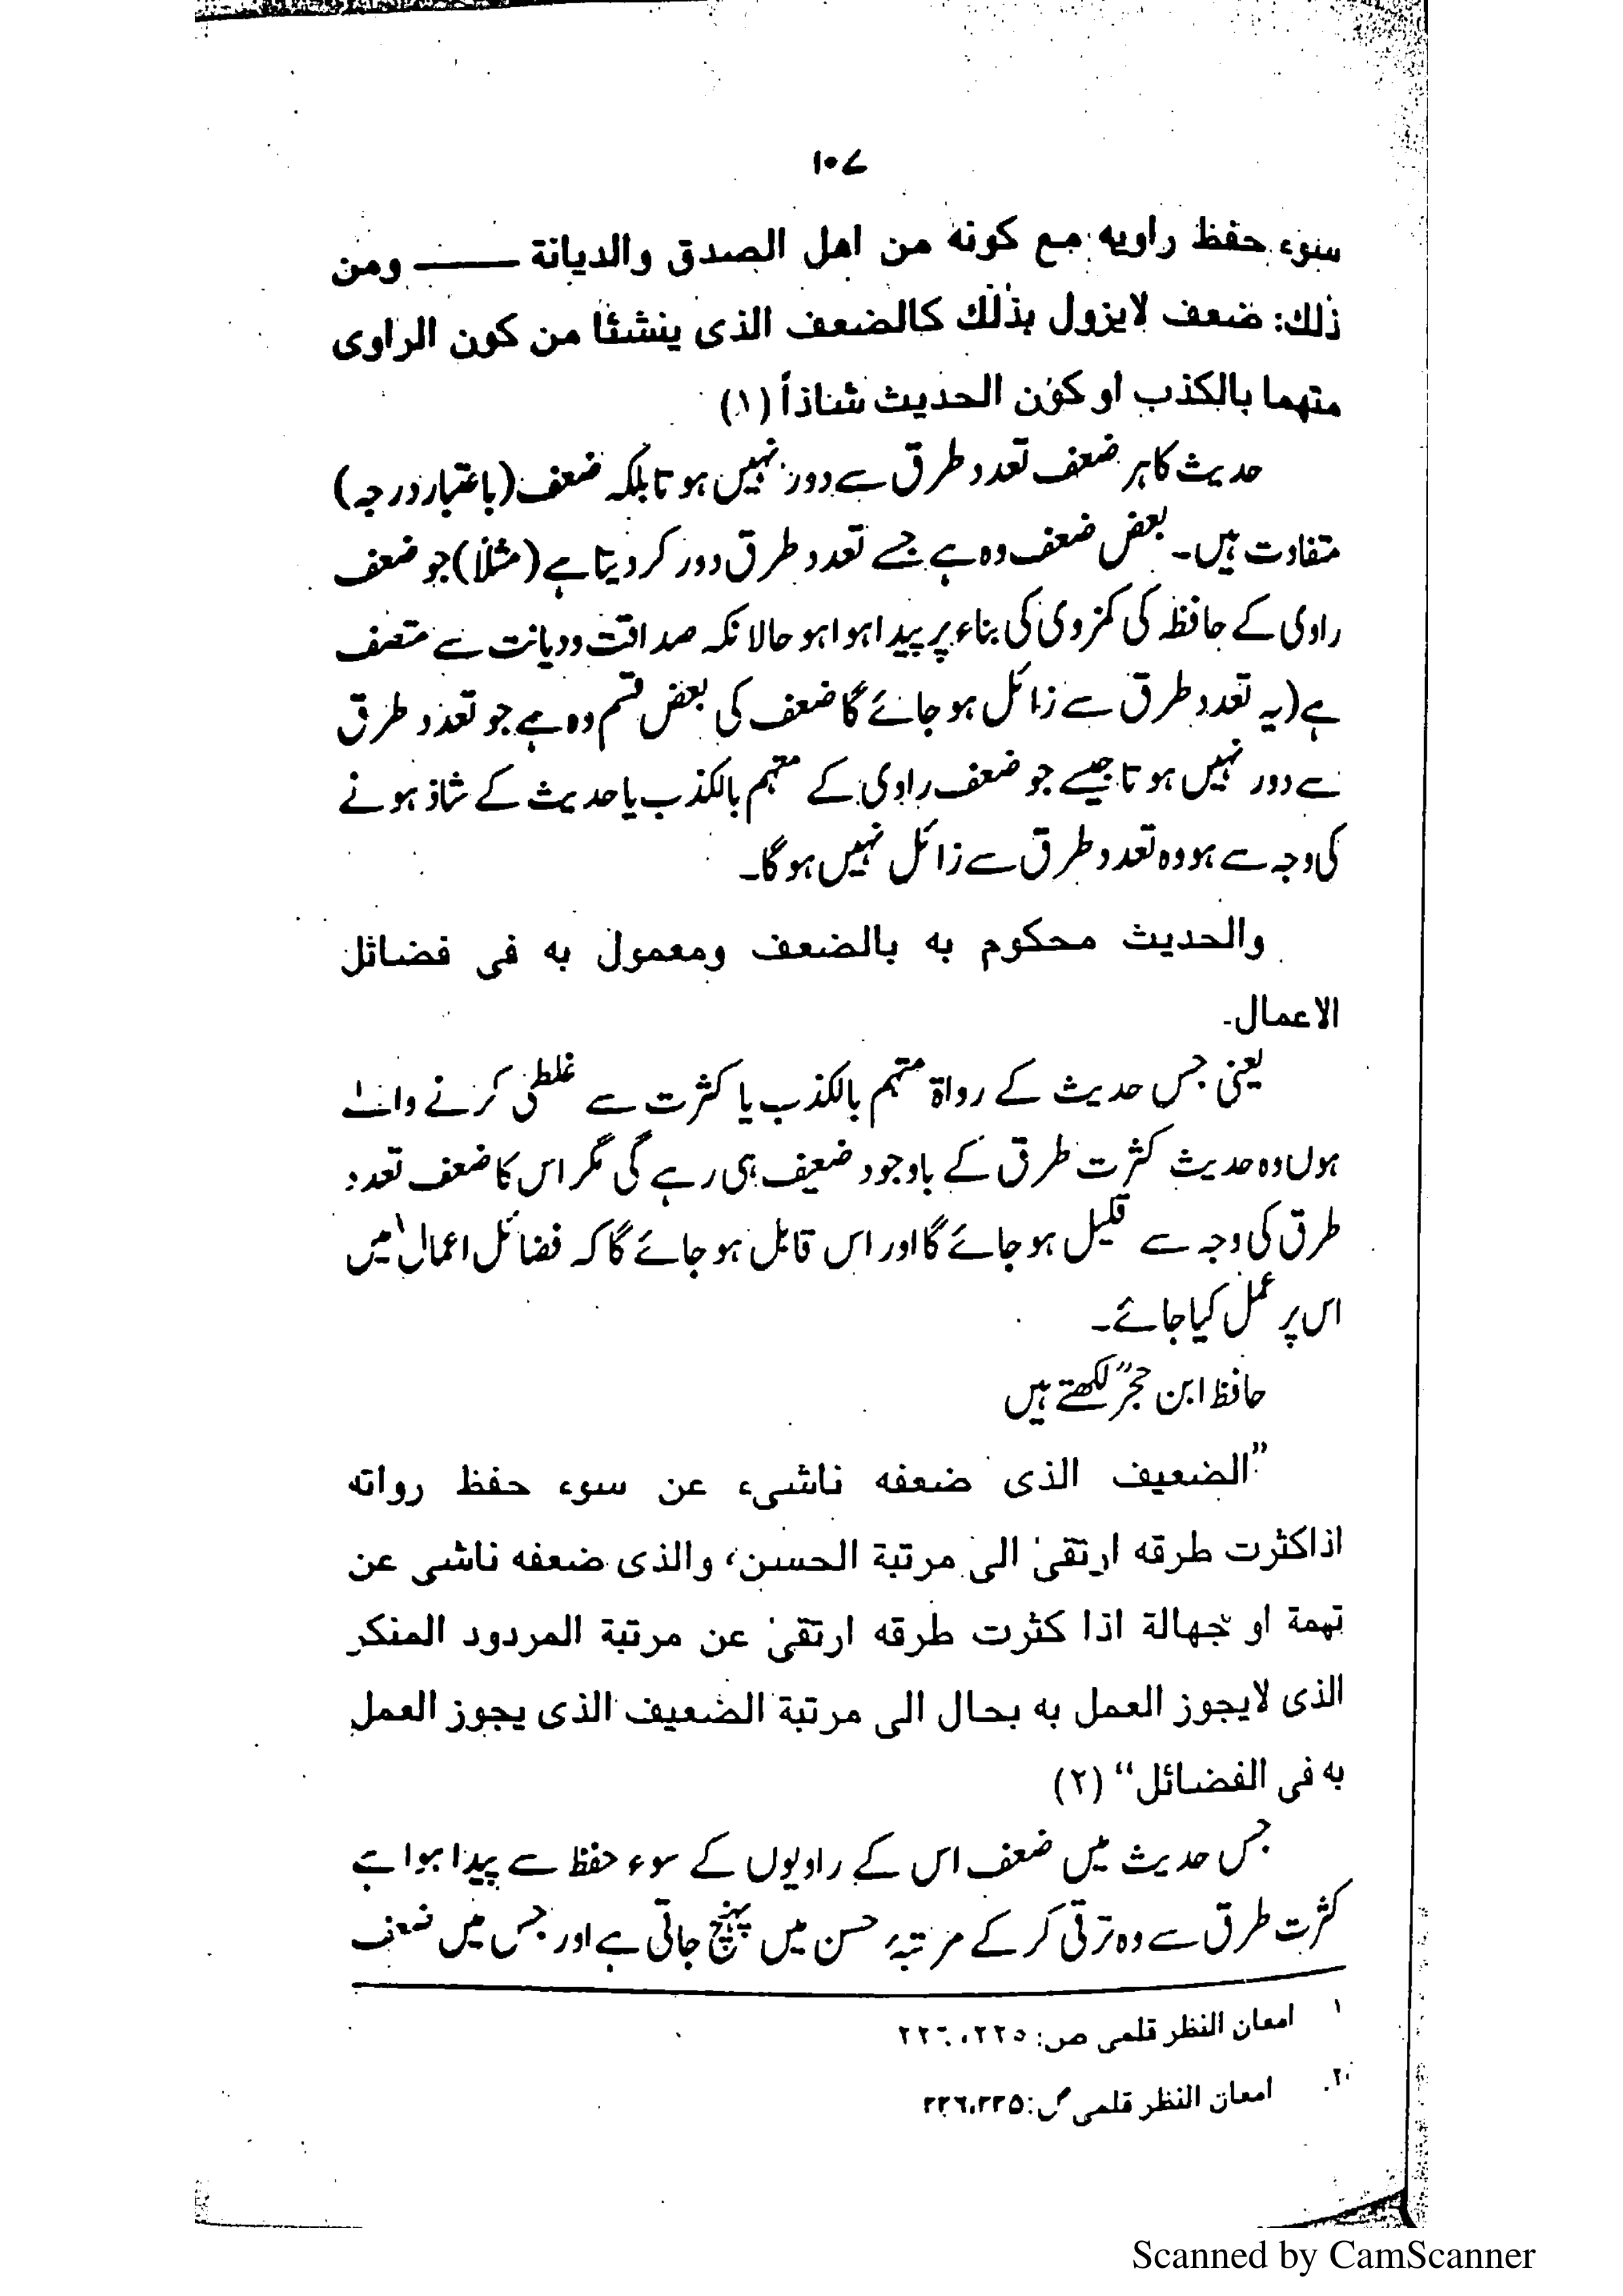 ۱۰۷
سوء حفظ راویه مع کونه من اهل الصدق والدیانة ——— ومن
ذلك: ضعف لایزول بذلك کالضعف الذی ینشئا من کون الراوی
متهما بالکذب او کون الحدیث شاذاً (۱)
حدیث کا ہر ضعف تعدد طرق سے دور نہیں ہوتا بلکہ ضعف (باعتبار درجہ)
متفاوت ہیں۔ بعض ضعف وہ ہے جسے تعدد طرق دور کر دیتا ہے (مثلاً) جو ضعف
راوی کے حافظہ کی کمزوی کی بناء پر پیدا ہوا ہو حالانکہ صداقت ودیانت سے متصف
ہے (یہ تعدد طرق سے زائل ہو جائے گا ضعف کی بعض قسم وہ ہے جو تعدد طرق
سے دور نہیں ہوتا جیسے جو ضعف راوی کے متہم بالکذب یا حدیث کے شاذ ہونے
کی وجہ سے ہو وہ تعدد طرق سے زائل نہیں ہوگا۔
والحدیث محکوم به بالضعف ومعمول به فی فضائل
الاعمال۔
یعنی جس حدیث کے رواۃ متہم بالکذب یا کثرت سے غلطی کرنے والے
ہوں وہ حدیث کثرت طرق کے باوجود ضعیف ہی رہے گی مگر اس کا ضعف تعدد
طرق کی وجہ سے قلیل ہو جائے گا اور اس قابل ہو جائے گا کہ فضائل اعمال میں
اس پر عمل کیا جائے۔
حافظ ابن حجرؒ لکھتے ہیں
”الضعیف الذی ضعفه ناشیء عن سوء حفظ رواته
اذاکثرت طرقه ارتقیٰ الی مرتبة الحسن، والذی ضعفه ناشی عن
تهمة او جهالة اذا کثرت طرقه ارتقیٰ عن مرتبة المردود المنکر
الذی لایجوز العمل به بحال الی مرتبة الضعیف الذی یجوز العمل
به فی الفضائل“ (۲)
جس حدیث میں ضعف اس کے راویوں کے سوء حفظ سے پیدا ہوا ہے
کثرت طرق سے وہ ترقی کر کے مرتبۂ حسن میں پہنچ جاتی ہے اور جس میں ضعف
۱ امعان النظر قلمی ص: ۲۲۵،۲۲۶
۲. امعان النظر قلمی ص: ۲۲۵،۲۲۶
Scanned by CamScanner